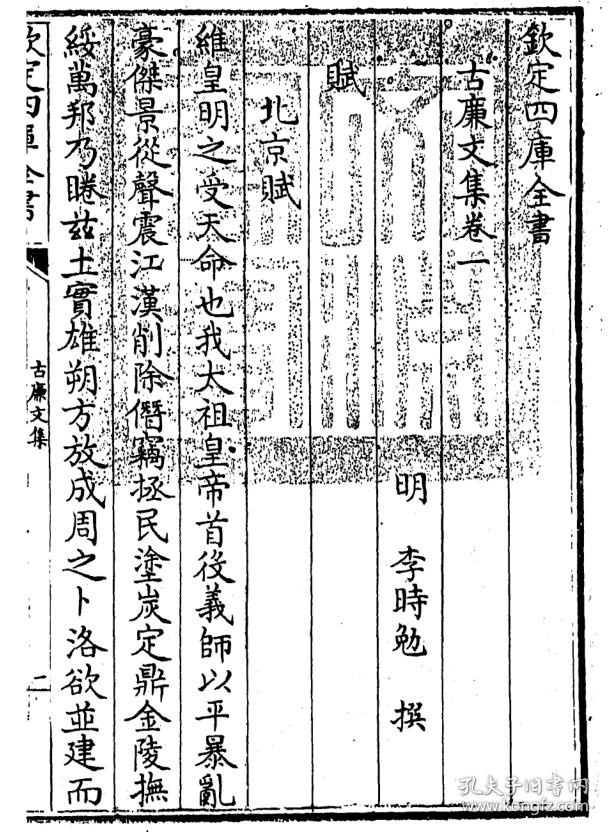 欽定四庫全書
古廉文集卷一
明 李時勉 撰
賦
北京賦
維皇明之受天命也我太祖皇帝首役義師以平暴亂
豪傑景從聲震江漢削除僭竊拯民塗炭定鼎金陵撫
綏萬邦乃睠兹土實雄朔方放成周之卜洛欲並建而
欽定四庫全書
古廉文集
二
孔夫子旧书网
www.kongfz.com